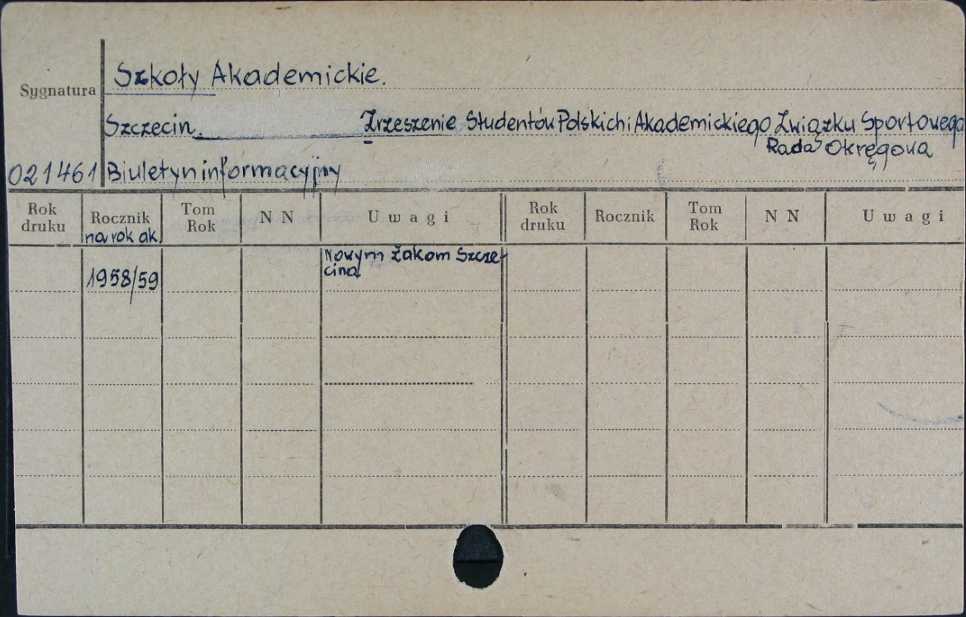 Szkoły Akademickie.
Sygnatura
Szczecin. Zrzeszenie Studentów Polskich i Akademickiego Związku Sportowego
Rada Okręgowa
021461 Biuletyn informacyjny
Rok druku Rocznik Tom Rok N N Uwagi Rok druku Rocznik Tom Rok N N Uwagi
na rok ak.
Nowym Żakom Szcze-
cina
1958/59